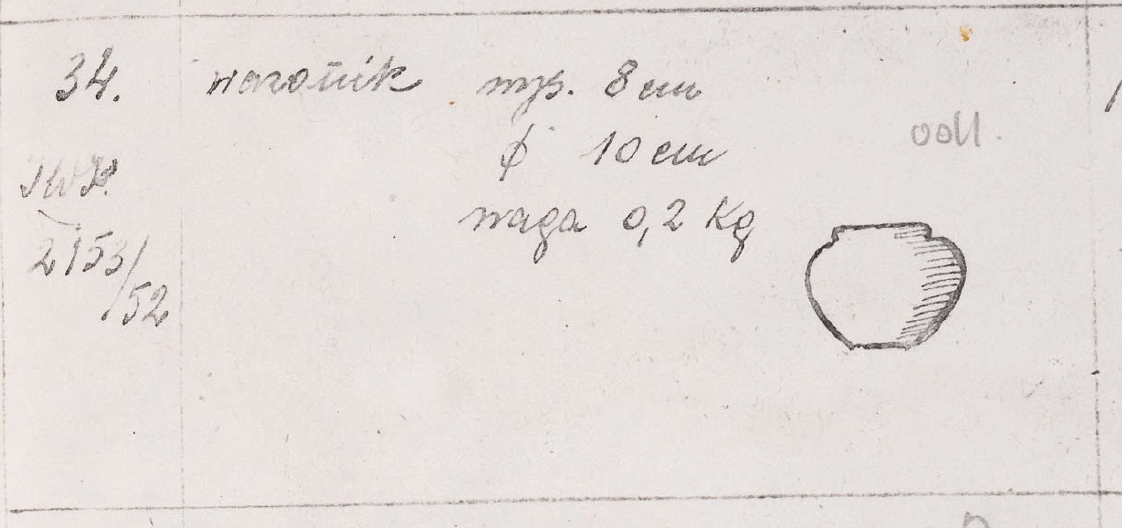 34. wazonik wys. 8 cm
ϕ 10 cm
waga 0,2 kg
2153/52